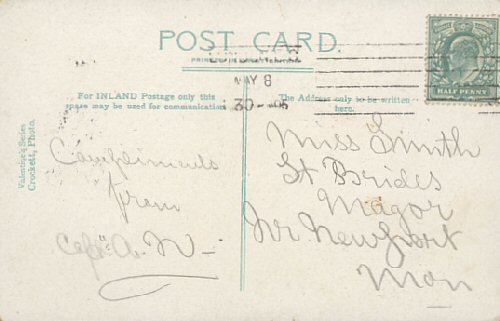 POST CARD.
PRINTED IN
MAY 8
30
HALF PENNY
For INLAND Postage only this
space may be used for communication
The Address only to be written
here.
Valentine's Series
Crockett, Photo.
Compliments
from
A. W—
Miss Smith
St Brides
Magor
Nr Newport
Mon